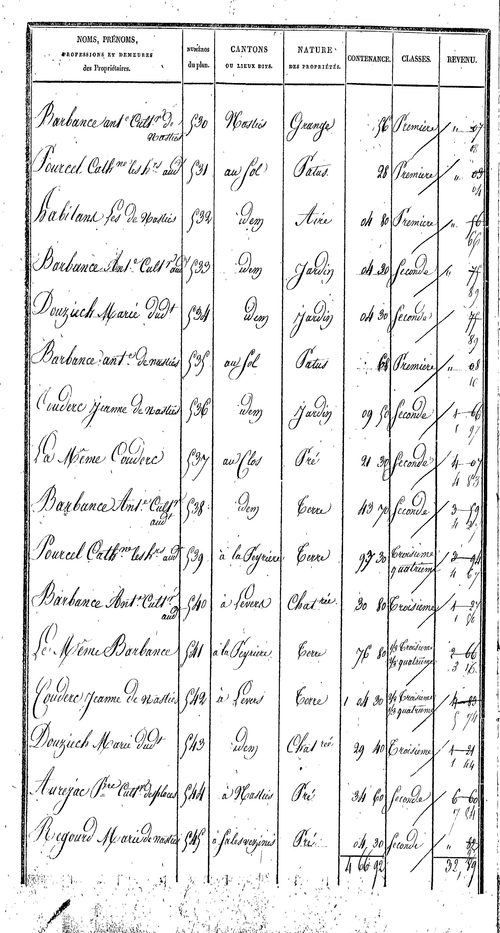 NOMS, PRÉNOMS, PROFESSIONS ET DEMEURES des Propriétaires. NUMÉROS du plan. CANTONS OU LIEUX DITS. NATURE DES PROPRIÉTÉS. CONTENANCE. CLASSES. REVENU.
Barbance ant.e Cult.r de Nastiés 530 Nastiés Grange 56 Premiere " 07
08
Pourcel Cath.ne les h.rs aud.t 531 au Sol Patus 28 Premiere " 03
04
habitans Les de Nastiés 532 idem Aire 04 80 Premiere " 56
66
Barbance Ant.e Cult.r aud.t 533 idem Jardin 04 30 Seconde " 75
89
Douziech Marie dud.t 534 idem Jardin 04 30 Seconde 75
89
Barbance ant.e de nastiés 535 au Sol Patus 68 Premiere " 08
10
Couderc Jeanne de Nastiés 536 idem Jardin 09 50 Seconde 1 66
1 97
La Même Couderc 537 au Clos Pré 21 30 Seconde 4 07
4 83
Barbance Ant.e Cult.r aud.t 538 idem Terre 43 70 Seconde 3 59
4
Pourcel Cath.ne les h.rs aud.t 539 à la Peyriere Terre 93 30 Troisieme quatrieme 3 94
4 67
Barbance Ant.e Cult.r aud.t 540 à Levers Chat.rée 30 80 Troisieme 1 27
1 56
Le Même Barbance 541 à la Peyriere Terre 76 80 Troisieme quatrieme 2 66
3 16
Couderc Jeanne de Nastiés 542 à Levers Terre 1 04 30 Troisieme quatrieme 4 83
5 74
Douziech Marie dud.t 543 idem Chat.rée 29 40 Troisieme 1 21
1 44
Aurejac P.re Cult.r desplaces 544 à Nastiés Pré 34 60 Seconde 6 60
7 84
Regourd Marie de nastiés 545 à Pré 04,30 Seconde " 82
4 66 92 32,49